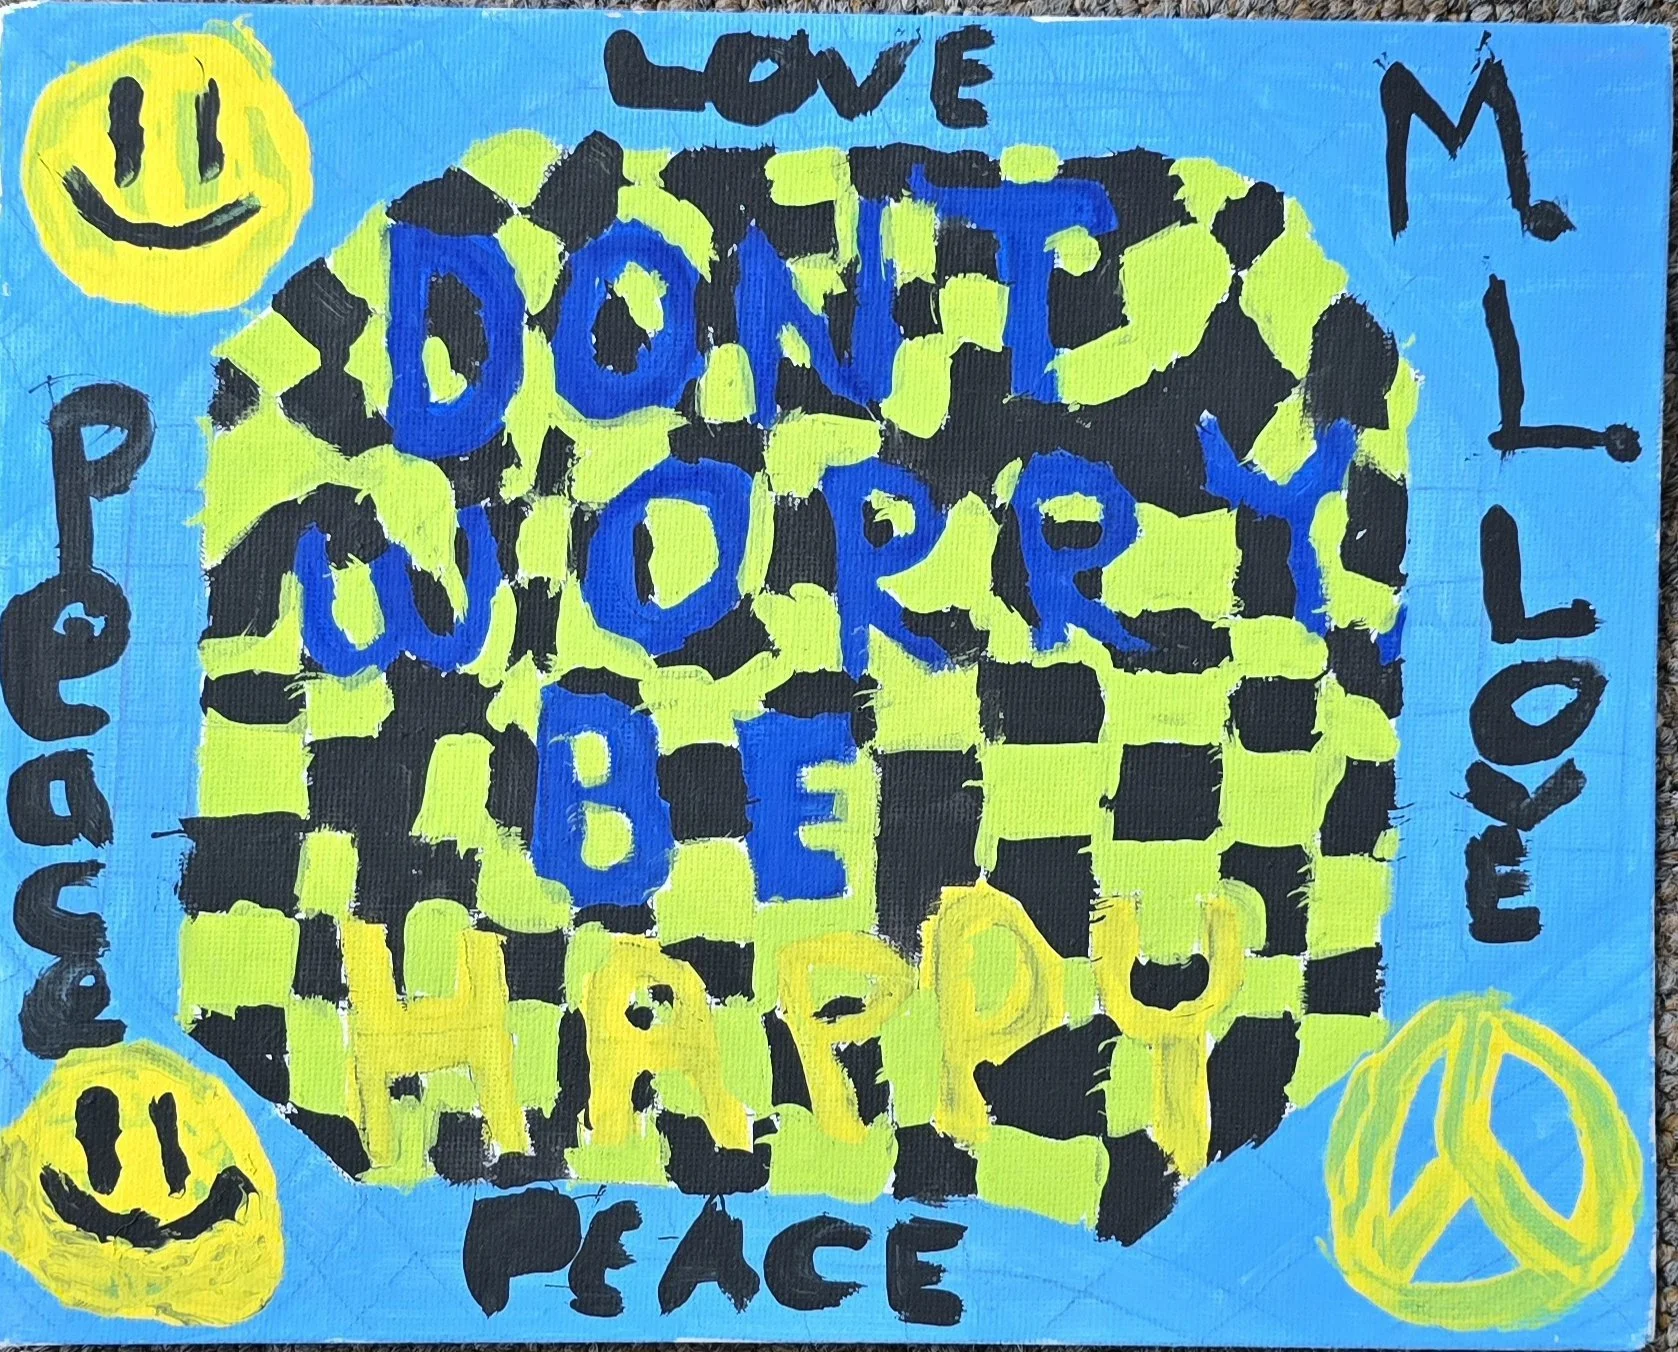 LOVE
M.
L.
DONT
WORRY
BE
HAPPY
Peace
LOVE
PEACE